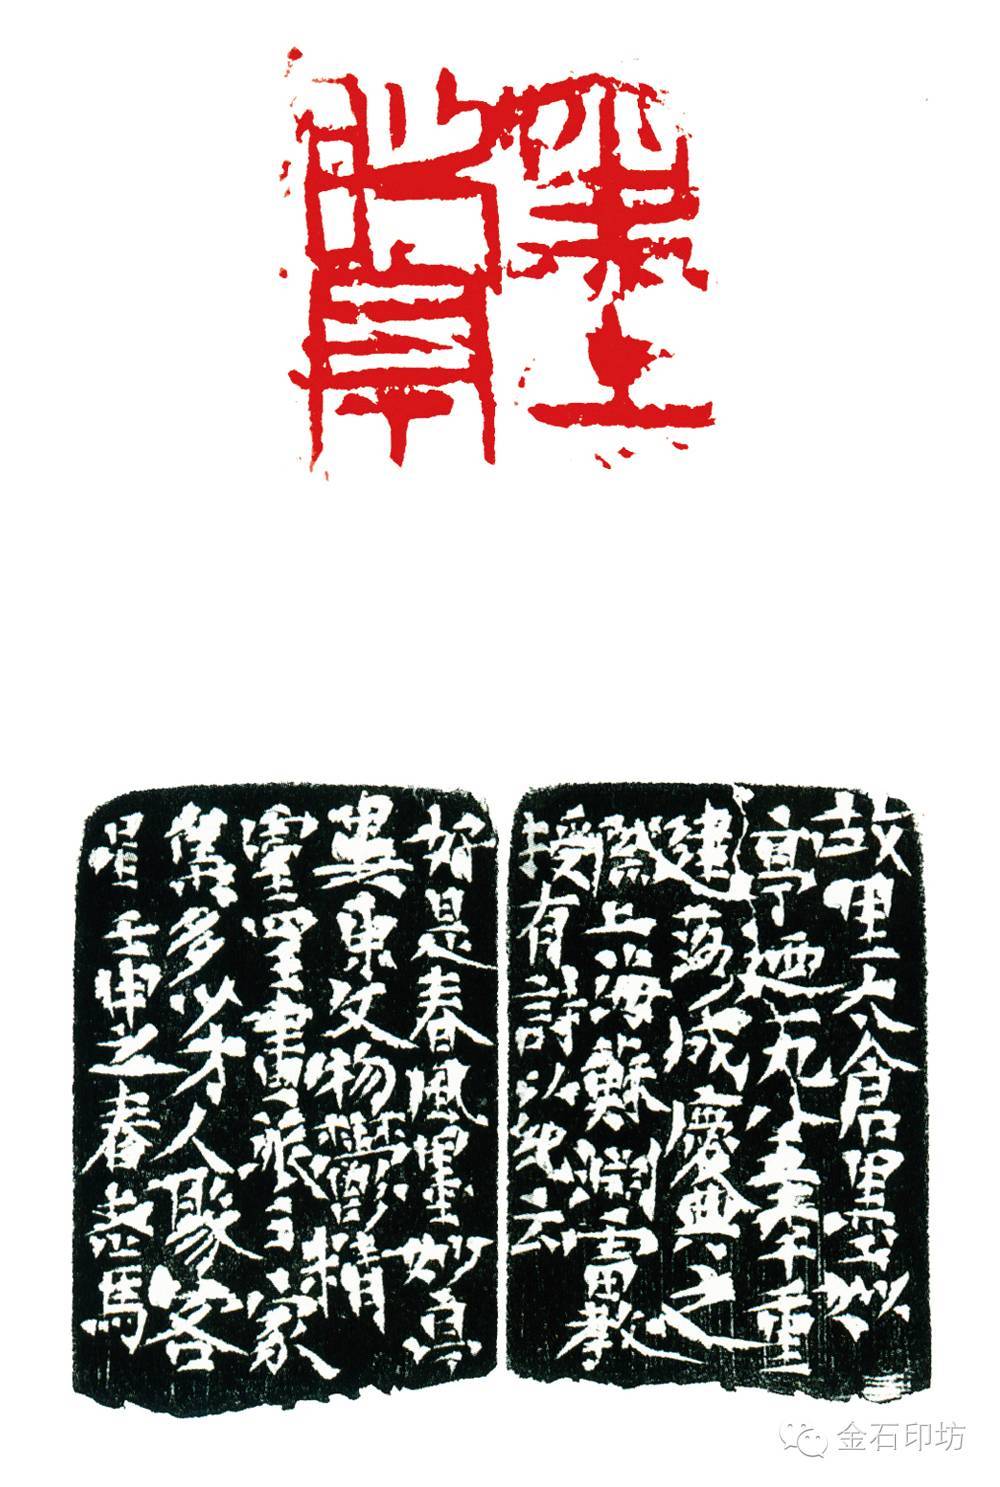 墨妙亭
故里太倉墨妙
亭廼九八年重
建落成慶典之
際上海蘇淵雷教
授有詩以紀云
好是春風墨妙亭
婁東文物鬱精
靈四王畫派家
雋多少才人聚客
星壬申之春馬
金石印坊